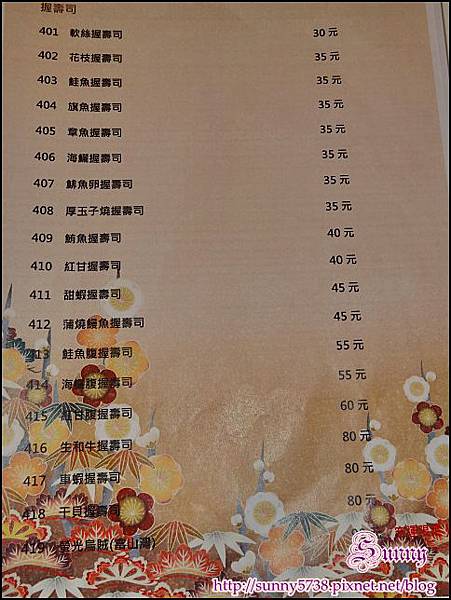 握壽司
401 軟絲握壽司 30 元
402 花枝握壽司 35 元
403 鮭魚握壽司 35 元
404 旗魚握壽司 35 元
405 章魚握壽司 35 元
406 海鱺握壽司 35 元
407 鯡魚卵握壽司 35 元
408 厚玉子燒握壽司 35 元
409 鮪魚握壽司 40 元
410 紅甘握壽司 40 元
411 甜蝦握壽司 45 元
412 蒲燒鰻魚握壽司 45 元
413 鮭魚腹握壽司 55 元
414 海鱺腹握壽司 55 元
415 紅甘腹握壽司 60 元
416 生和牛握壽司 80 元
417 車蝦握壽司 80 元
418 干貝握壽司 80 元
419 螢光烏賊(富山灣)
Sunny
http://sunny5738.pixnet.net/blog